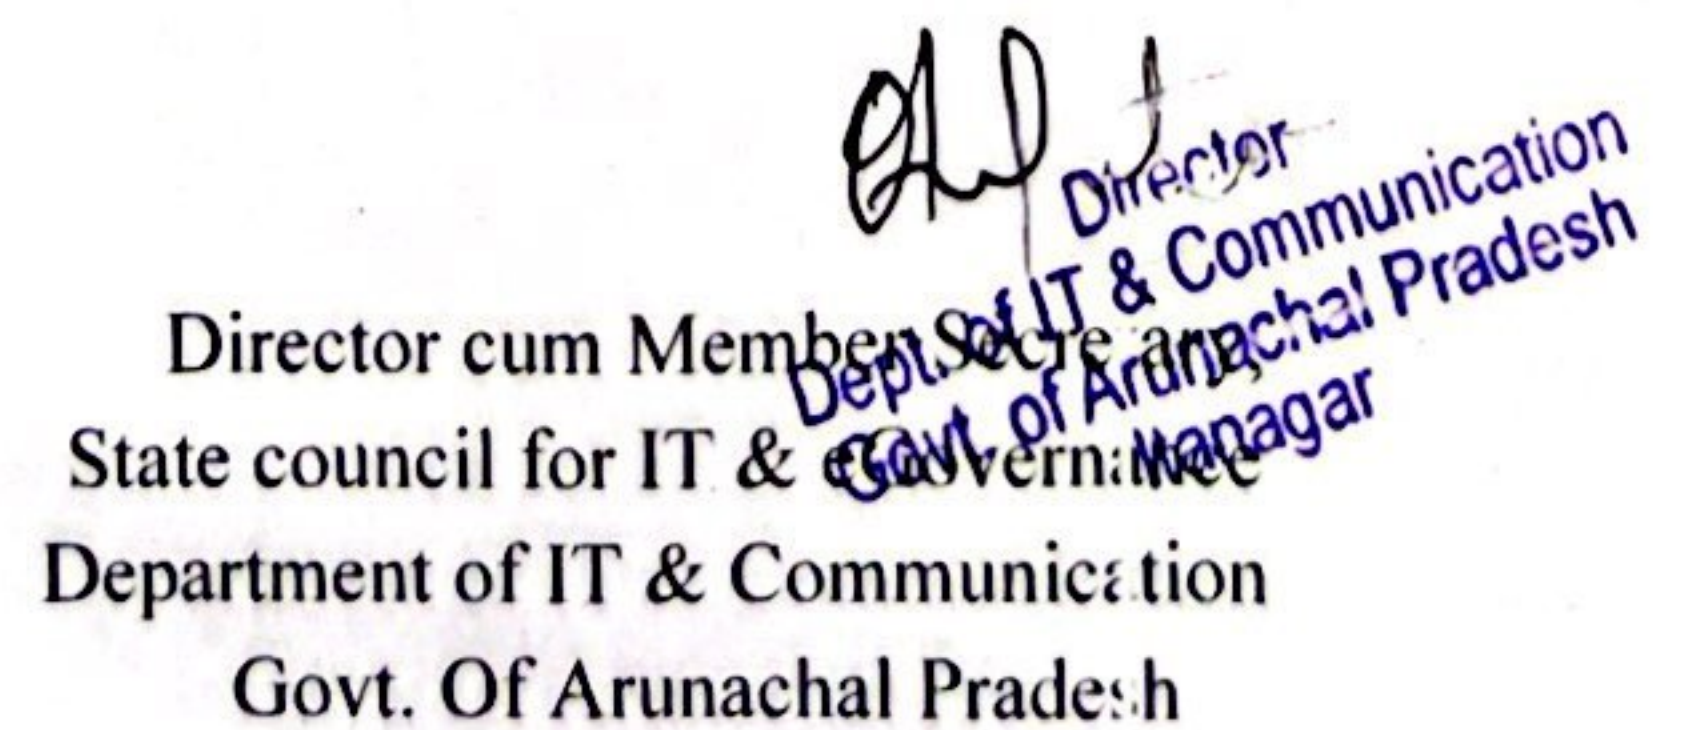 Director
Dept. of IT & Communication
Govt. of Arunachal Pradesh
Itanagar
Director cum Member Secretary,
State council for IT & eGovernance
Department of IT & Communication
Govt. Of Arunachal Pradesh